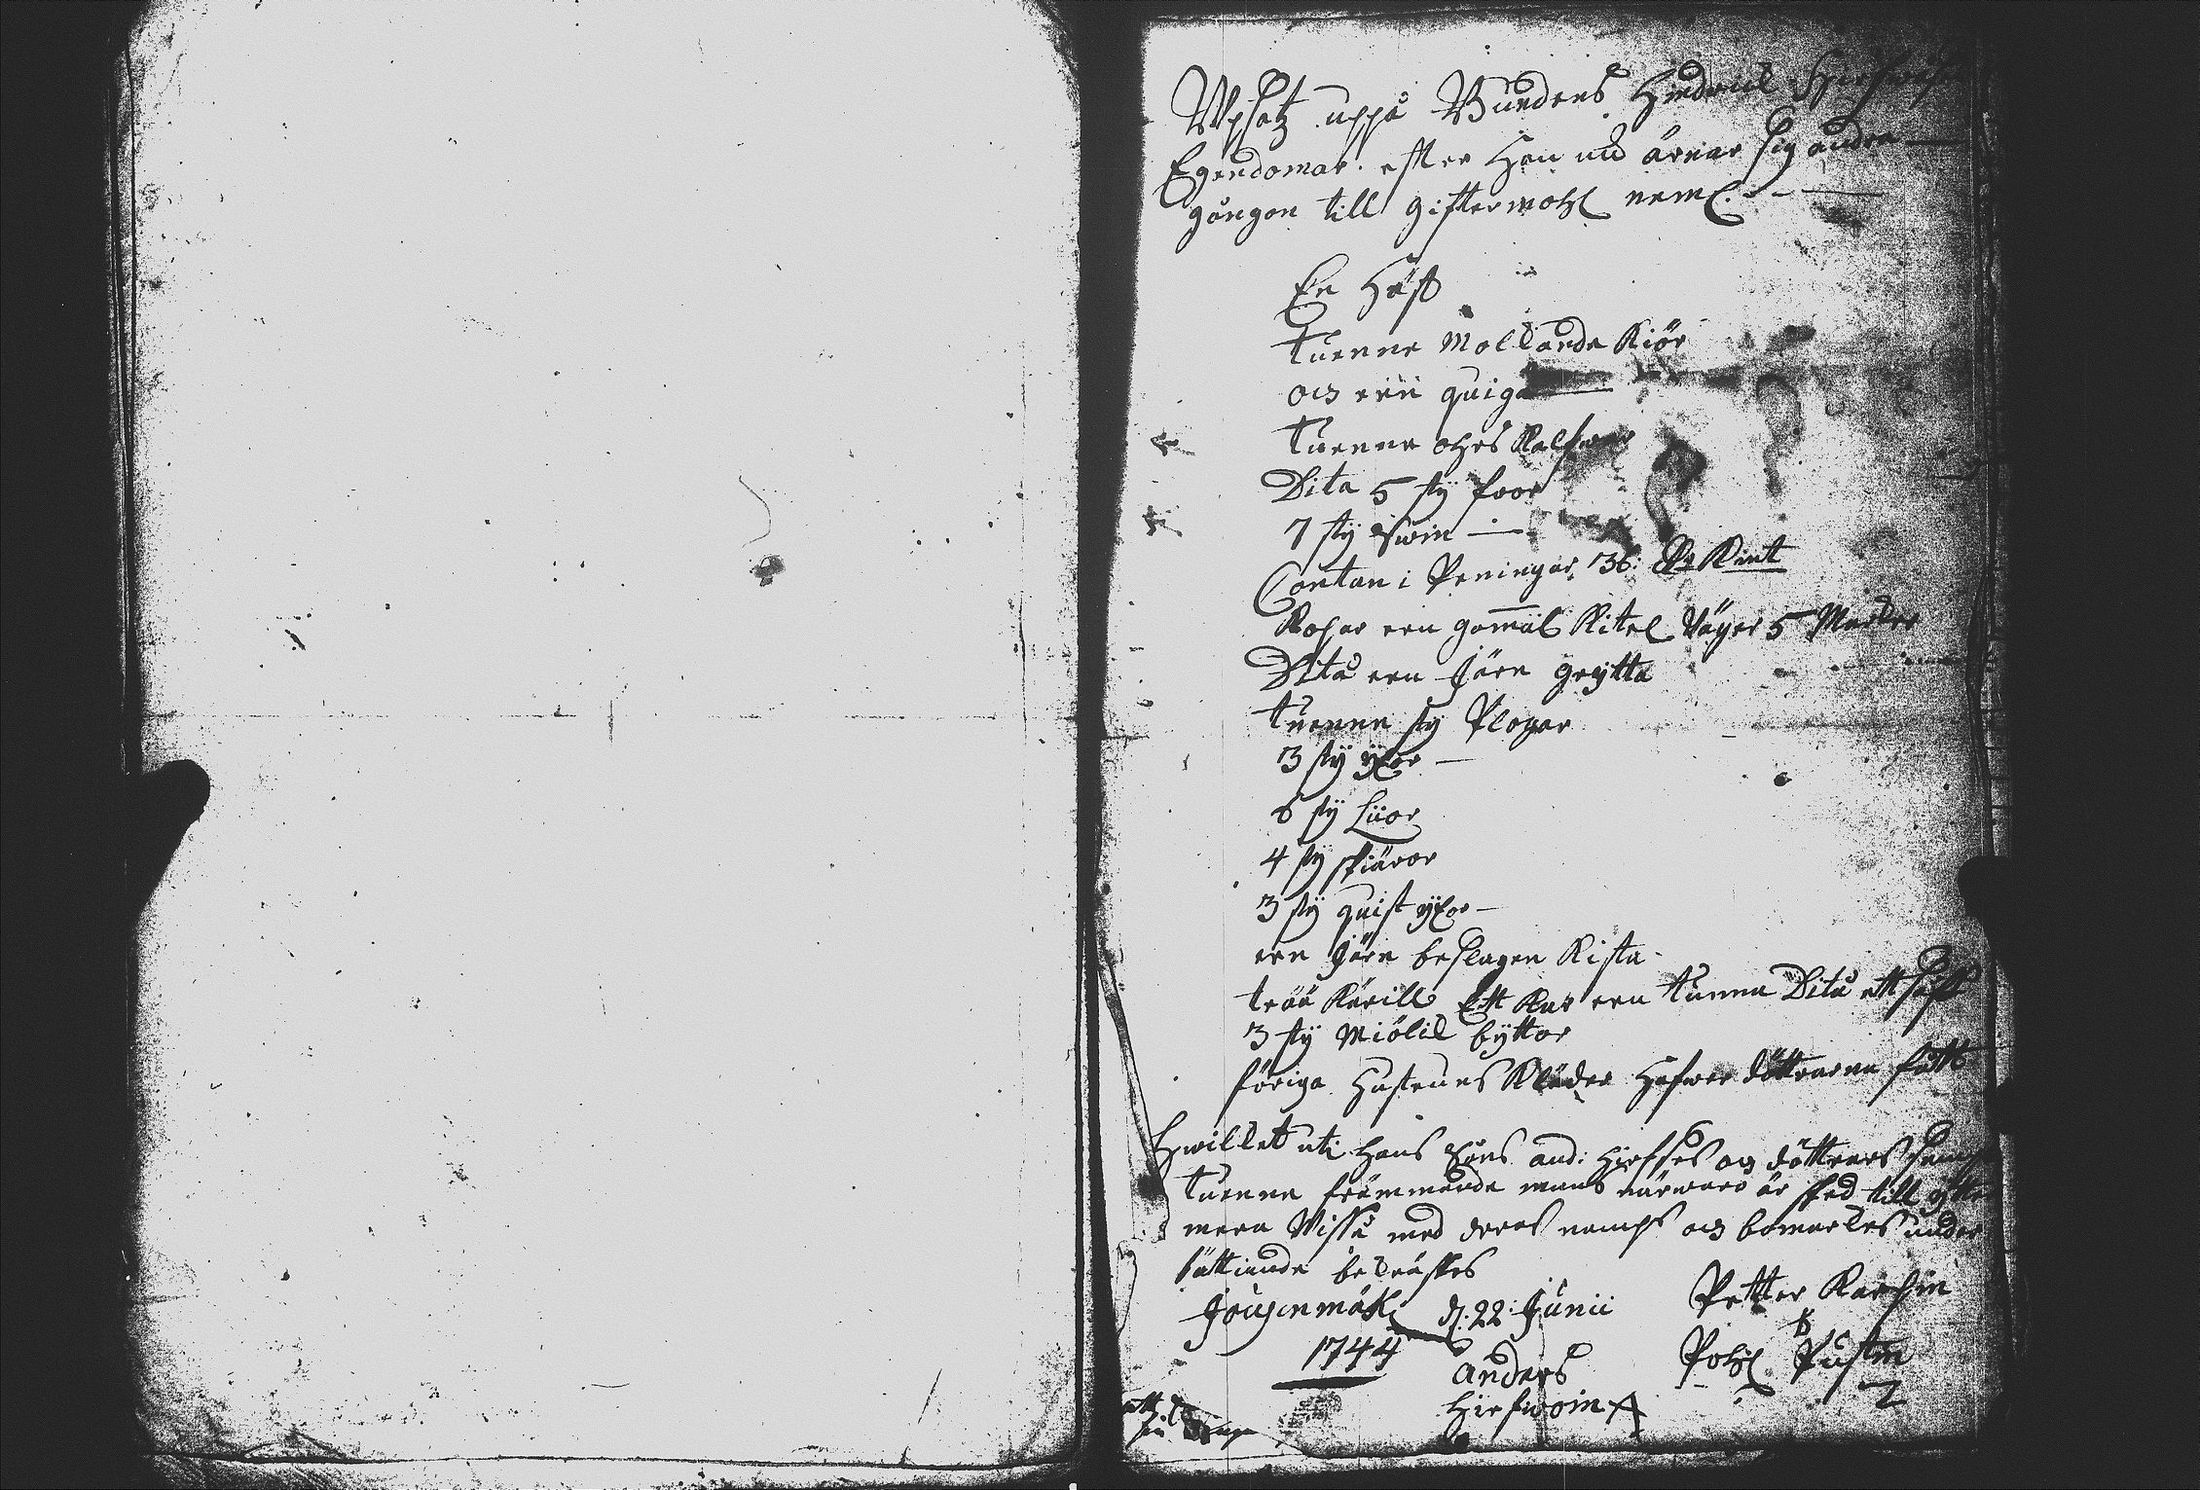 Upsatz uppå Bundens Hindrick
Egendomar efter Han nu ärnar sig andra
gången till giftermohl neml.
En Häst
tuenne Molkande Kiör
och een quiga
tuenne ohrs Kalfwar
Dito 5 sty foor
7 sty Swin
Contan i Peningar 36: Kmt
Kopar een gamal Kitel Väger 5 Marker
Dito een Järn grytta
tuenne sty Plogar
3 sty yxor
6 sty Liior
4 sty skiäror
3 sty quist yxor
een Järn beslagen Kista
trää Kärill Ett Kar een tunna Dito ett
3 sty Miölck byttor
föriga Hustrues Kläder Hafwer döttrarna fått
Hwilket uti Hans Sons And: Hirfwes och döttrars sampt
tuenne främmande mans närwaro är sked till ytter
mera Wisso med deras nampn och bomerkes under
sättiande bekräftes
d: 22: Junii
1744
Petter Karhin
Pohl Pustin
Anders
Hirfwoin